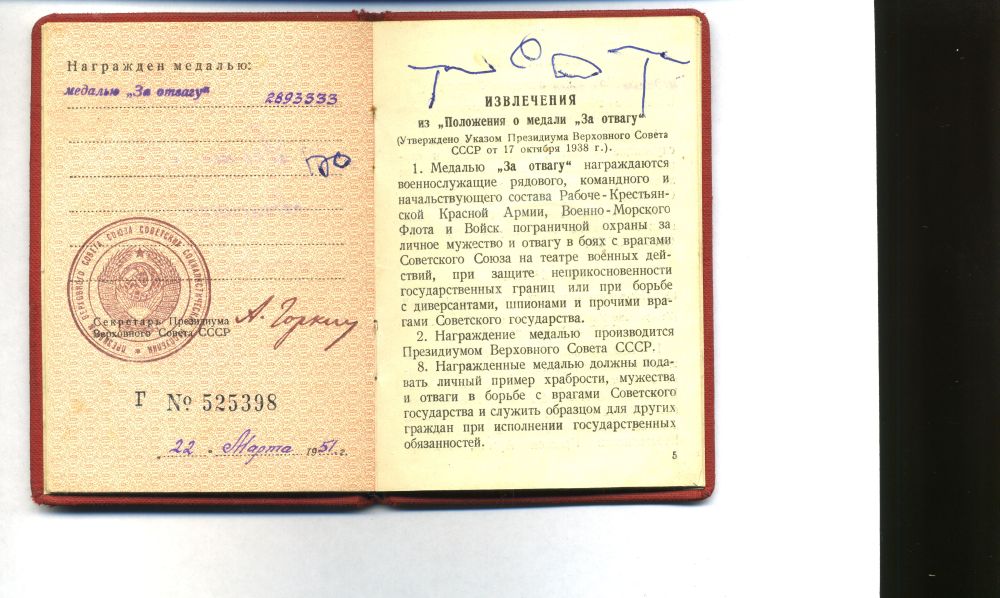 Награжден медалью:
медалью „За отвагу“ 2693333
СОЮЗА СОВЕТСКИХ СОЦИАЛИСТИЧЕСКИХ РЕСПУБЛИК * ПРЕЗИДИУМ ВЕРХОВНОГО СОВЕТА
Секретарь Президиума
Верховного Совета СССР
А. Горкин
Г № 525398
„22“ Марта 1951 г.
ИЗВЛЕЧЕНИЯ
из „Положения о медали „За отвагу“
(Утверждено Указом Президиума Верховного Совета
СССР от 17 октября 1938 г.).
1. Медалью „За отвагу“ награждаются
военнослужащие рядового, командного и
начальствующего состава Рабоче-Крестьян-
ской Красной Армии, Военно-Морского
Флота и Войск пограничной охраны за
личное мужество и отвагу в боях с врагами
Советского Союза на театре военных дей-
ствий, при защите неприкосновенности
государственных границ или при борьбе
с диверсантами, шпионами и прочими вра-
гами Советского государства.
2. Награждение медалью производится
Президиумом Верховного Совета СССР.
8. Награжденные медалью должны пода-
вать личный пример храбрости, мужества
и отваги в борьбе с врагами Советского
государства и служить образцом для других
граждан при исполнении государственных
обязанностей.
5